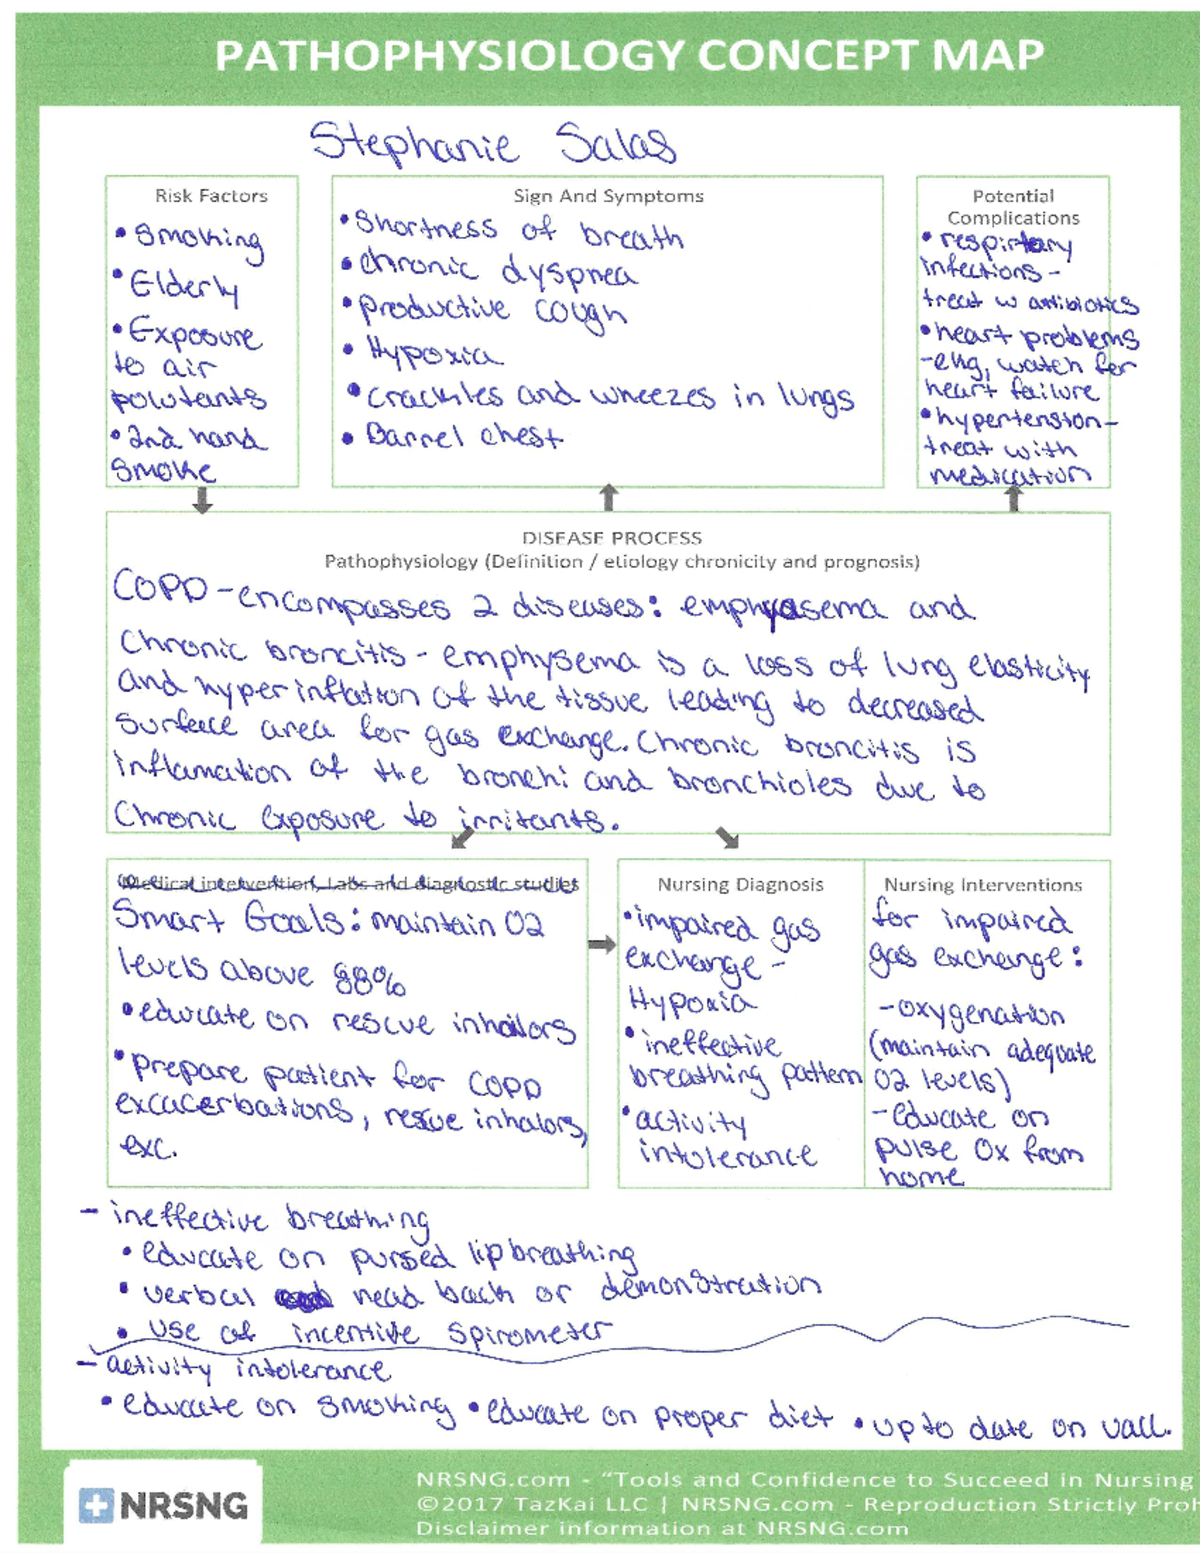 PATHOPHYSIOLOGY CONCEPT MAP
Stephanie Salas
Risk Factors
• Smoking
• Elderly
• Exposure
to air
polutants
• 2nd hand
smoke
Sign And Symptoms
• Shortness of breath
• chronic dyspnea
• productive cough
• Hypoxia
• crackles and wheezes in lungs
• Barrel chest
Potential
Complications
• respirtory
infections -
treat w antibiotics
• heart problems
- ekg, watch for
heart failure
• hypertension -
treat with
medication
DISEASE PROCESS
Pathophysiology (Definition / etiology chronicity and prognosis)
COPD - encompasses 2 diseases: emphysema and
Chronic broncitis - emphysema is a loss of lung elasticity
and hyperinflation of the tissue leading to decreased
surface area for gas exchange. Chronic broncitis is
inflamation of the bronchi and bronchioles due to
Chronic exposure to irritants.
Medical intervention, Labs and diagnostic studies
Smart Goals: maintain O2
levels above 88%
• educate on rescue inhailors
• prepare patient for COPD
excacerbations, rescue inhalors,
exc.
Nursing Diagnosis
• impaired gas
exchange -
Hypoxia
• ineffective
breathing pattern
• activity
intolerance
Nursing Interventions
for impaired
gas exchange:
- oxygenation
(maintain adequate
O2 levels)
- educate on
pulse ox from
home
- ineffective breathing
• educate on pursed lip breathing
• verbal read back or demonstration
• use of incentive spirometer
- activity intolerance
• educate on smoking • educate on proper diet • up to date on vacc.
NRSNG
NRSNG.com - "Tools and Confidence to Succeed in Nursing
©2017 TazKai LLC | NRSNG.com - Reproduction Strictly Proh
Disclaimer information at NRSNG.com